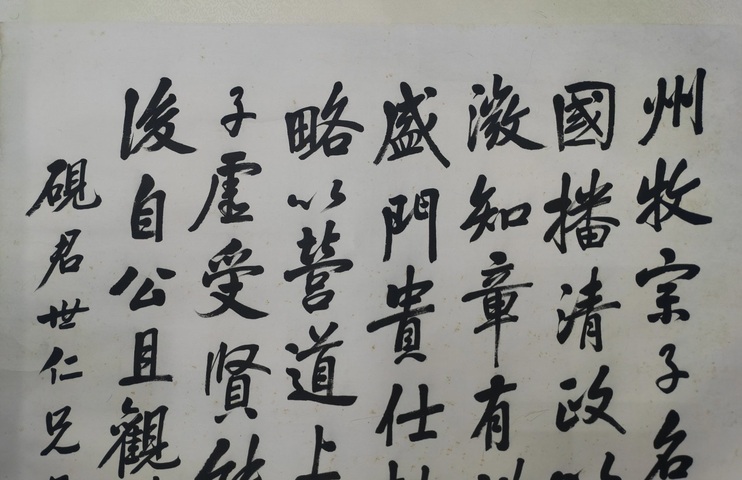 州牧宗子名
國播清政
激知章有
盛門貴仕
略以營道上
子虛受賢
後自公且觀
硯君世仁兄